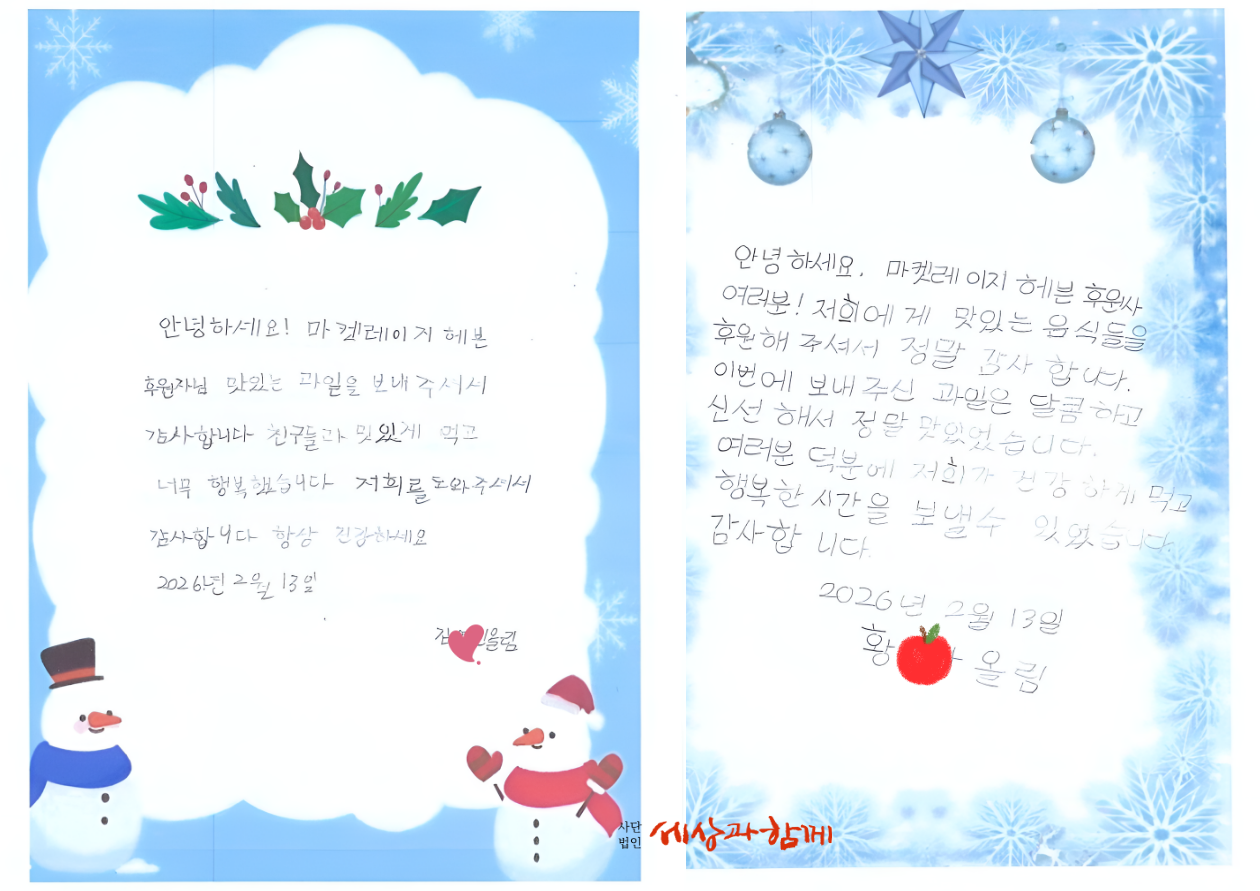 안녕하세요! 마켓레이지 헤븐
후원자님 맛있는 과일을 보내주셔서
감사합니다 친구들과 맛있게 먹고
너무 행복했습니다 저희를 도와주셔서
감사합니다 항상 건강하세요
2026년 2월 13일
김 올림
안녕하세요. 마켓레이지 헤븐 후원사
여러분! 저희에게 맛있는 음식들을
후원해 주셔서 정말 감사 합니다.
이번에 보내주신 과일은 달콤하고
신선 해서 정말 맛있었습니다.
여러분 덕분에 저희가 건강 하게 먹고
행복한 시간을 보낼수 있었습니다.
감사합 니다.
2026년 2월 13일
황 올림
사단
법인 세상과함께